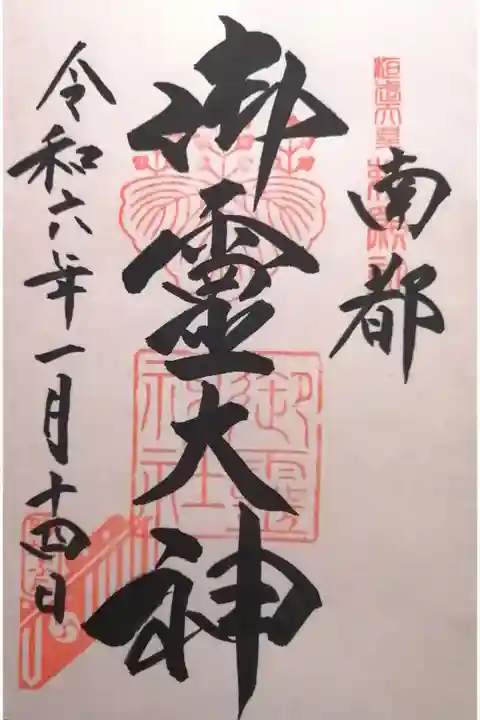 南都
御霊大神
御霊神社
令和六年一月十四日